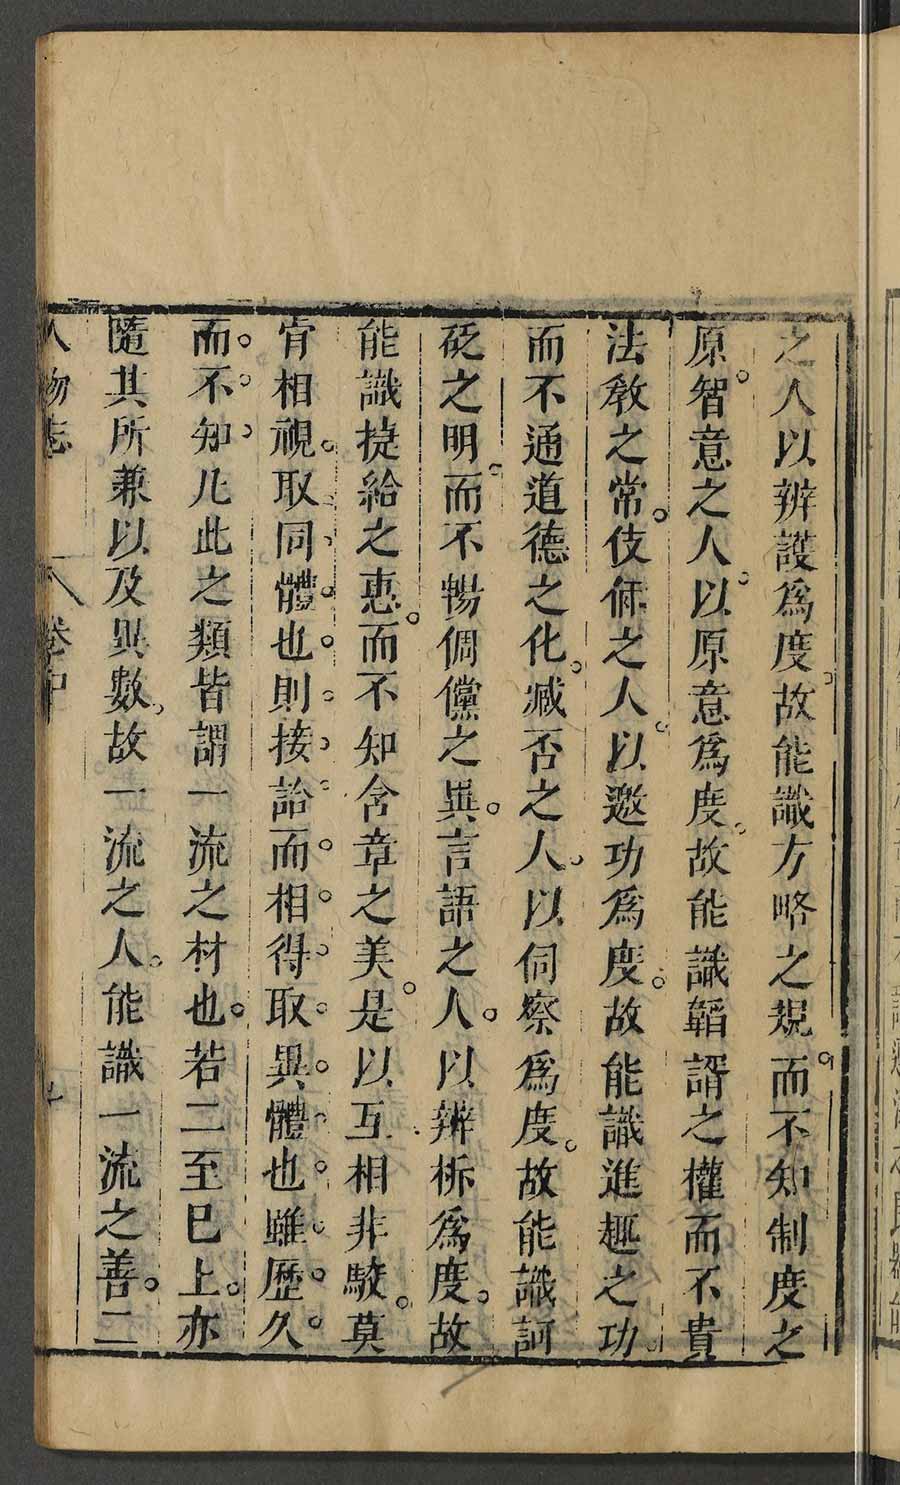 之人以辨護為度故能識方略之規而不知制度之
原智意之人以原意為度故能識韜諝之權而不貴
法教之常伎倆之人以邀功為度故能識進趣之功
而不通道德之化臧否之人以伺察為度故能識訶
砭之明而不暢倜儻之異言語之人以辨析為度故
能識捷給之惠而不知含章之美是以互相非駮莫
肯相視取同體也則接詥而相得取異體也雖歷久
而不知凡此之類皆謂一流之材也若二至已上亦
隨其所兼以及異數故一流之人能識一流之善二
人物志 卷中